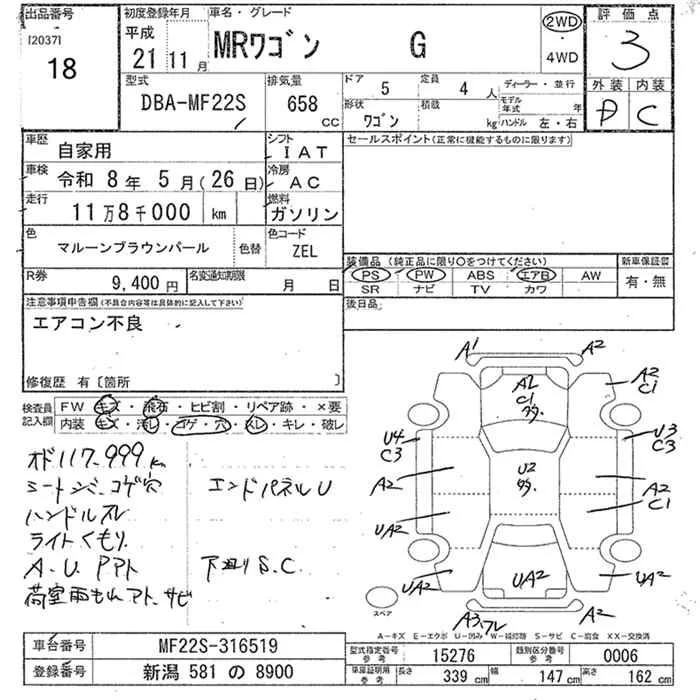 出品番号
[2037]
18
初度登録年月
平成
21 11 月
車名・グレード
MRワゴン G
2WD
・
4WD
評価点
3
外装 内装
D C
型式
DBA-MF22S
排気量
658
CC
ドア
5
定員
4 人
形状
ワゴン
積載
kg
ディーラー・並行
モデル
年式
年
ハンドル 左・右
車歴
自家用
シフト
IAT
車検
令和 8年 5月(26日)
冷房
AC
走行
11万8千000 km
燃料
ガソリン
色
マルーンブラウンパール
色替
色コード
ZEL
R券
9,400 円
名変通知期限
月 日
セールスポイント(正常に機能するものに限ります)
装備品(純正品に限り〇をつけてください)
PS PW ABS エアB AW
SR ナビ TV カワ
新車保証書
有・無
後日品
注意事項申告欄(不具合内容等は具体的に記入して下さい)
エアコン不良
修復歴 有〔箇所 〕
検査員
記入欄
FW キズ・飛石・ヒビ割・リペア跡・×要
内装 キズ・汚レ・コゲ・穴・スレ・キレ・破レ
オド117.999 km
シートシミ、コゲ穴
エンドパネルU
ハンドルスレ
ライトくもり
A.U.Pアト
下廻りS.C
荷室雨もれアト、サビ
A1
A2
A2
C1
A2
C1
多.
U4
C3
U3
C3
A2
U2
多.
A2
C1
UA2
UA2
UA2
UA2
A3フレ
A2
スペア
A-キズ E-エクボ U-凹み W-補修跡 S-サビ C-腐食 XX-交換済
車台番号
MF22S-316519
登録番号
新潟 581 の 8900
型式指定番号
参考
15276
類別区分番号
参考
0006
車庫証明用
参考
長さ
339 cm
幅
147 cm
高さ
162 cm